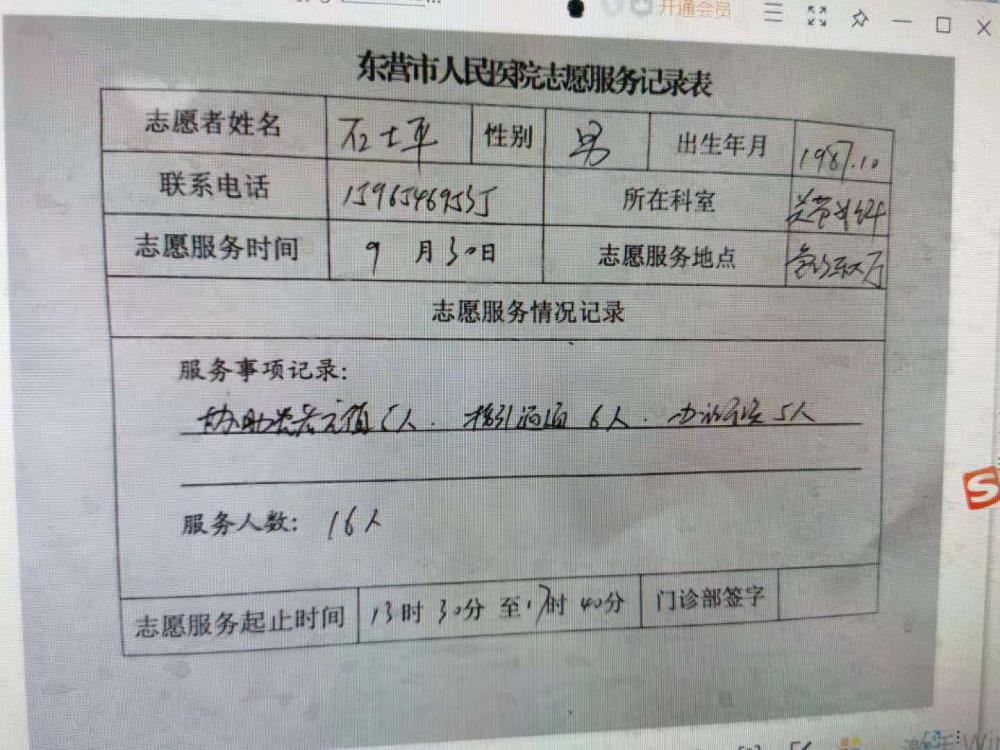 开通会员
东营市人民医院志愿服务记录表
志愿者姓名 石士平 性别 男 出生年月 1987.10
联系电话 所在科室
志愿服务时间 9月30日 志愿服务地点
志愿服务情况记录
服务事项记录:
协助患者充值5人. 指引 6人. 5人
服务人数: 16人
志愿服务起止时间 13时30分至17时40分 门诊部签字